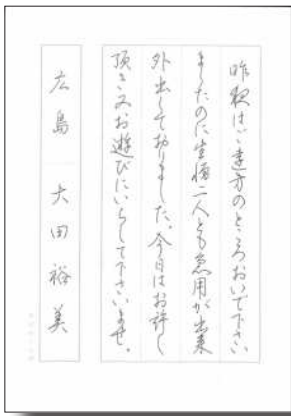 昨夜はご遠方のところおいで下さい
ましたのに生憎二人とも急用が出来
外出しておりました。今日はお許し
頂きみお遊びにいらして下さいませ。
広島 大田裕美